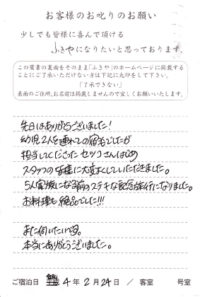 お客様のお叱りのお願い
少しでも皆様に喜んで頂ける
ふきやになりたいと思っております。
この葉書の裏面をそのまま「ふきや」のホームページに掲載する
ことにご了承いただけない方は下記に丸印をして下さい。
「了承できない」
表面のご住所、お名前は掲載しませんので宜しくお願いいたします。
先日はありがとうございました!
幼児2人を連れての宿泊でしたが
担当してくださったセツコさんはじめ
スタッフの皆様に大変よくしていただきました。
5人家族になる前のステキな記念旅行になりました。
お料理も絶品でした!!!
また伺いたい宿。
本当にありがとうございました。
ご宿泊日 4年2月24日/客室 号室